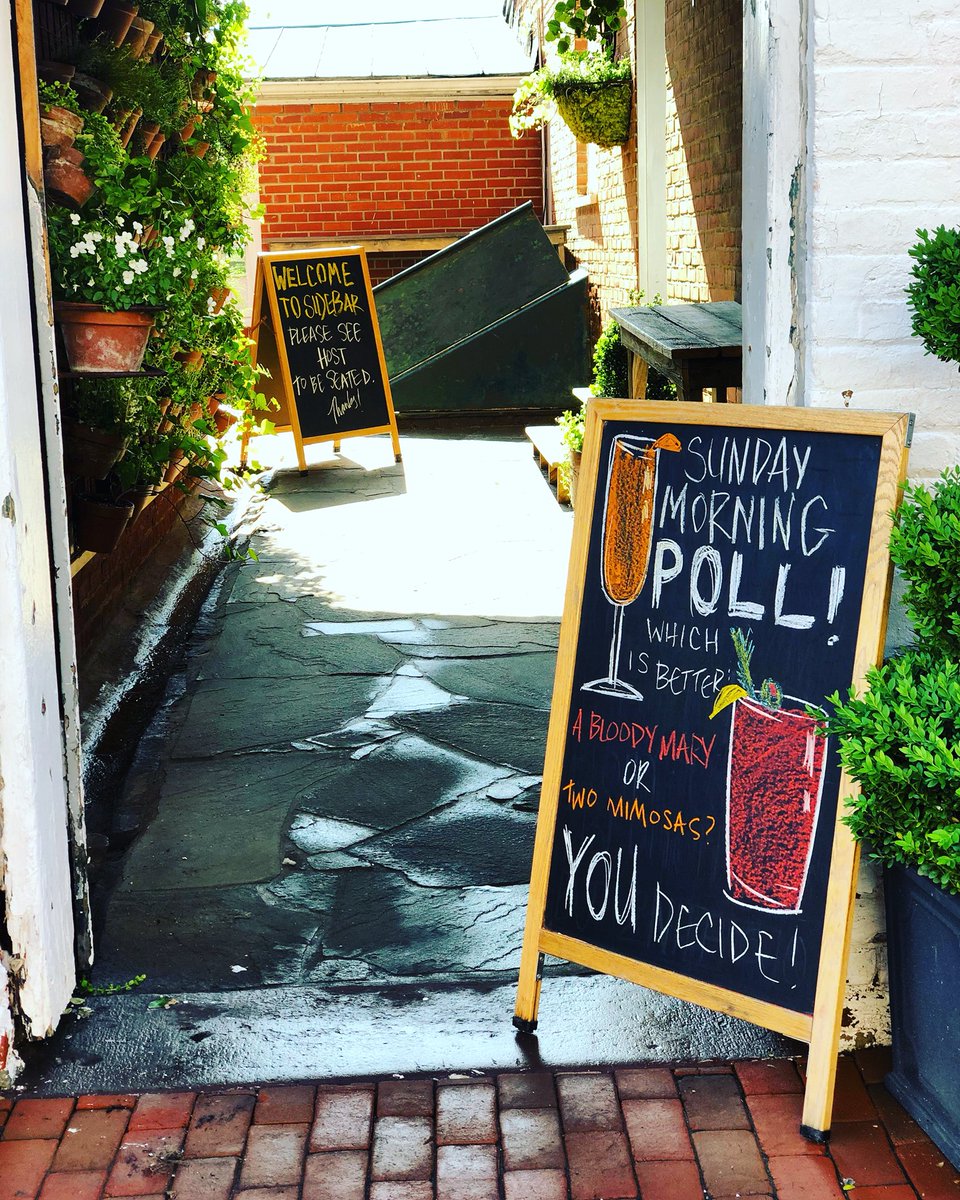 WELCOME
TO SIDEBAR
PLEASE SEE
HOST
TO BE SEATED.
Thanks!
SUNDAY
MORNING
POLL!
WHICH
IS BETTER:
A BLOODY MARY
OR
TWO MIMOSAS?
YOU DECIDE!